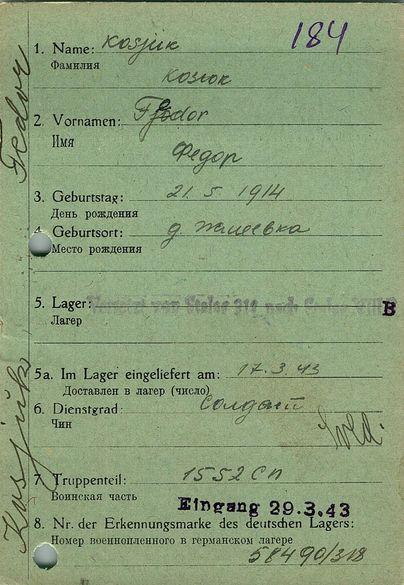 184
1. Name: Kosjuk
Фамилия
Косюк
2. Vornamen: Fjodor
Имя
Федор
3. Geburtstag: 21. 5. 1914
День рождения
4. Geburtsort: д
Место рождения
5. Lager: von Stalag nach
Лагер
B
5a. Im Lager eingeliefert am: 17.3.43
Доставлен в лагер (число)
6. Dienstgrad: Солдат
Чин
Sold.
7. Truppenteil: 1552 СП
Воинская часть
Eingang 29.3.43
8. Nr. der Erkennungsmarke des deutschen Lagers:
Номер военнопленного в германском лагере
58490/318
Kosjuk Fedor